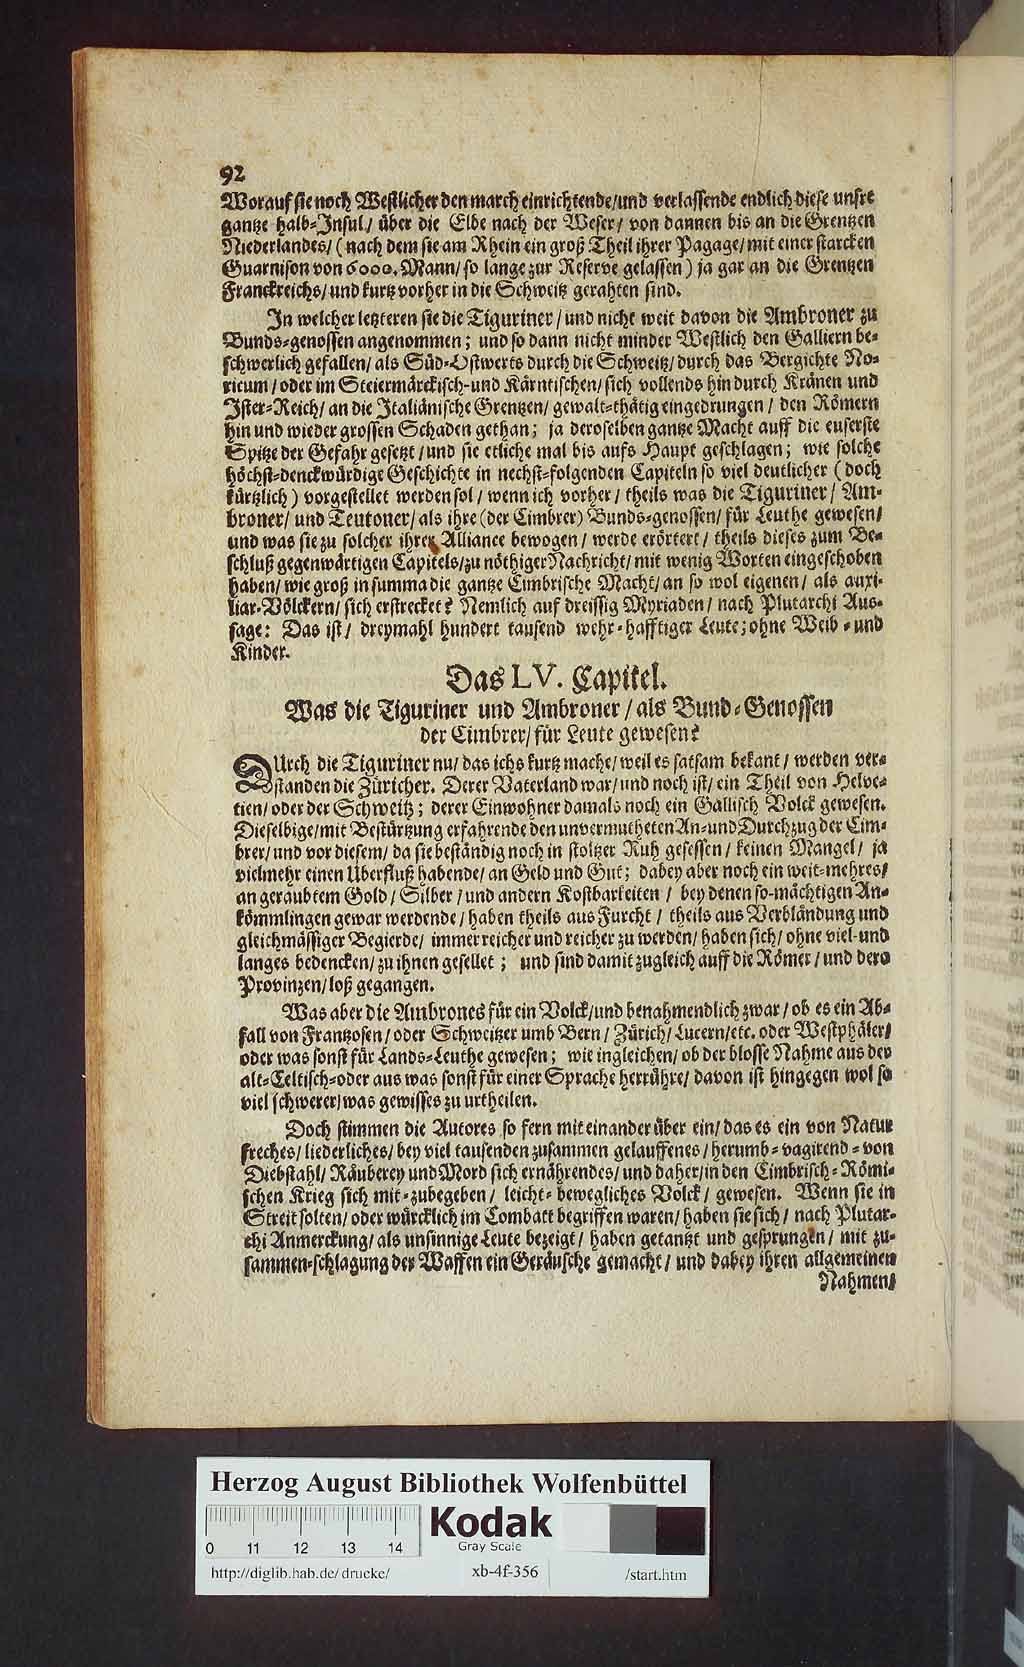 92
Worauf sie noch Westlicher den march einrichtende/und verlassende endlich diese unsre
gantze halb-Insul/ über die Elbe nach der Weser/ von dannen bis an die Grentzen
Niederlandes/ (nach dem sie am Rhein ein groß Theil ihrer Pagage/ mit einer starcken
Guarnison von 6000. Mann/ so lange zur Reserve gelassen) ja gar an die Grentzen
Franckreichs/ und kurtz vorher in die Schweitz gerahten sind.
In welcher letzteren sie die Tiguriner/ und nicht weit davon die Ambroner zu
Bunds-genossen angenommen; und so dann nicht minder Westlich den Galliern be-
schwerlich gefallen/ als Süd-Ostwerts durch die Schweitz/ durch das Bergichte No-
ricum/ oder im Steiermärckisch-und Kärntischen/ sich vollends hindurch Kränen und
Ister-Reich/ an die Italiänische Grentzen/ gewalt-thätig eingedrungen/ den Römern
hin und wieder grossen Schaden gethan; ja deroselben gantze Macht auff die euserste
Spitze der Gefahr gesetzt/ und sie etliche mal bis aufs Haupt geschlagen; wie solche
höchst-denckwürdige Geschichte in nechst-folgenden Capiteln so viel deutlicher (doch
kürtzlich) vorgestellet werden sol/ wenn ich vorher/ theils was die Tiguriner/ Am-
broner/ und Teutoner/ als ihre (der Cimbrer) Bunds-genossen/ für Leuthe gewesen/
und was sie zu solcher ihrer Alliance bewogen/ werde erörtert/ theils dieses zum Be-
schluß gegenwärtigen Capitels/zu nöthiger Nachricht/ mit wenig Worten eingeschoben
haben/ wie groß in summa die gantze Cimbrische Macht/ an so wol eigenen/ als auxi-
liar-Völckern/ sich erstrecket? Nemlich auf dreissig Myriaden/ nach Plutarchi Aus-
sage: Das ist/ dreymahl hundert tausend wehr-hafftiger Leute; ohne Weib-und
Kinder.
Das LV. Capitel.
Was die Tiguriner und Ambroner/ als Bund-Genossen
der Cimbrer/ für Leute gewesen?
DUrch die Tiguriner nu/ das ichs kurtz mache/ weil es satsam bekant/ werden ver-
standen die Züricher. Derer Vaterland war/ und noch ist/ ein Theil von Helve-
tien/ oder der Schweitz; derer Einwohner damals noch ein Gallisch Volck gewesen.
Dieselbige/ mit Bestürtzung erfahrende den unvermutheten An-und Durchzug der Cim-
brer/ und vor diesem/ da sie beständig noch in stoltzer Ruh gesessen/ keinen Mangel/ ja
vielmehr einen Überfluß habende/ an Geld und Gut; dabey aber noch ein weit-mehres/
an geraubtem Gold/ Silber/ und andern Kostbarkeiten/ bey denen so-mächtigen An-
kömmlingen gewar werdende/ haben theils aus Furcht/ theils aus Verbländung und
gleichmässiger Begierde/ immer reicher und reicher zu werden/ haben sich/ ohne viel-und
langes bedencken/ zu ihnen gesellet; und sind damit zugleich auff die Römer/ und dero
Provinzen/ loß gegangen.
Was aber die Ambrones für ein Volck/und benahmendlich zwar/ ob es ein Ab-
fall von Frantzosen/ oder Schweitzer umb Bern/ Zürich/ Lucern/etc. oder Westphäler/
oder was sonst für Lands-Leuthe gewesen; wie ingleichen/ ob der blosse Nahme aus der
alt-Celtisch-oder aus was sonst für einer Sprache herrühre/ davon ist hingegen wol so
viel schwerer/was gewisses zu urtheilen.
Doch stimmen die Autores so fern mit einander über ein/ das es ein von Natur
freches/ liederliches/ bey viel tausenden zusammen gelauffenes/ herumb-vagirend-von
Diebstahl/ Räuberey und Mord sich ernährendes/ und daher/in den Cimbrisch-Römi-
schen Krieg sich mit-zubegeben/ leicht-bewegliches Volck/ gewesen. Wenn sie in
Streit solten/ oder würcklich im Combatt begriffen waren/ haben sie sich/ nach Plutar-
chi Anmerckung/ als unsinnige Leute bezeigt/ haben getantzt und gesprungen/ mit zu-
sammen-schlagung der Waffen ein Geräusche gemacht/ und dabey ihren allgemeinen
Nahmen/
Herzog August Bibliothek Wolfenbüttel
Kodak
Gray Scale
0 11 12 13 14
http://diglib.hab.de/drucke/ xb-4f-356 /start.htm